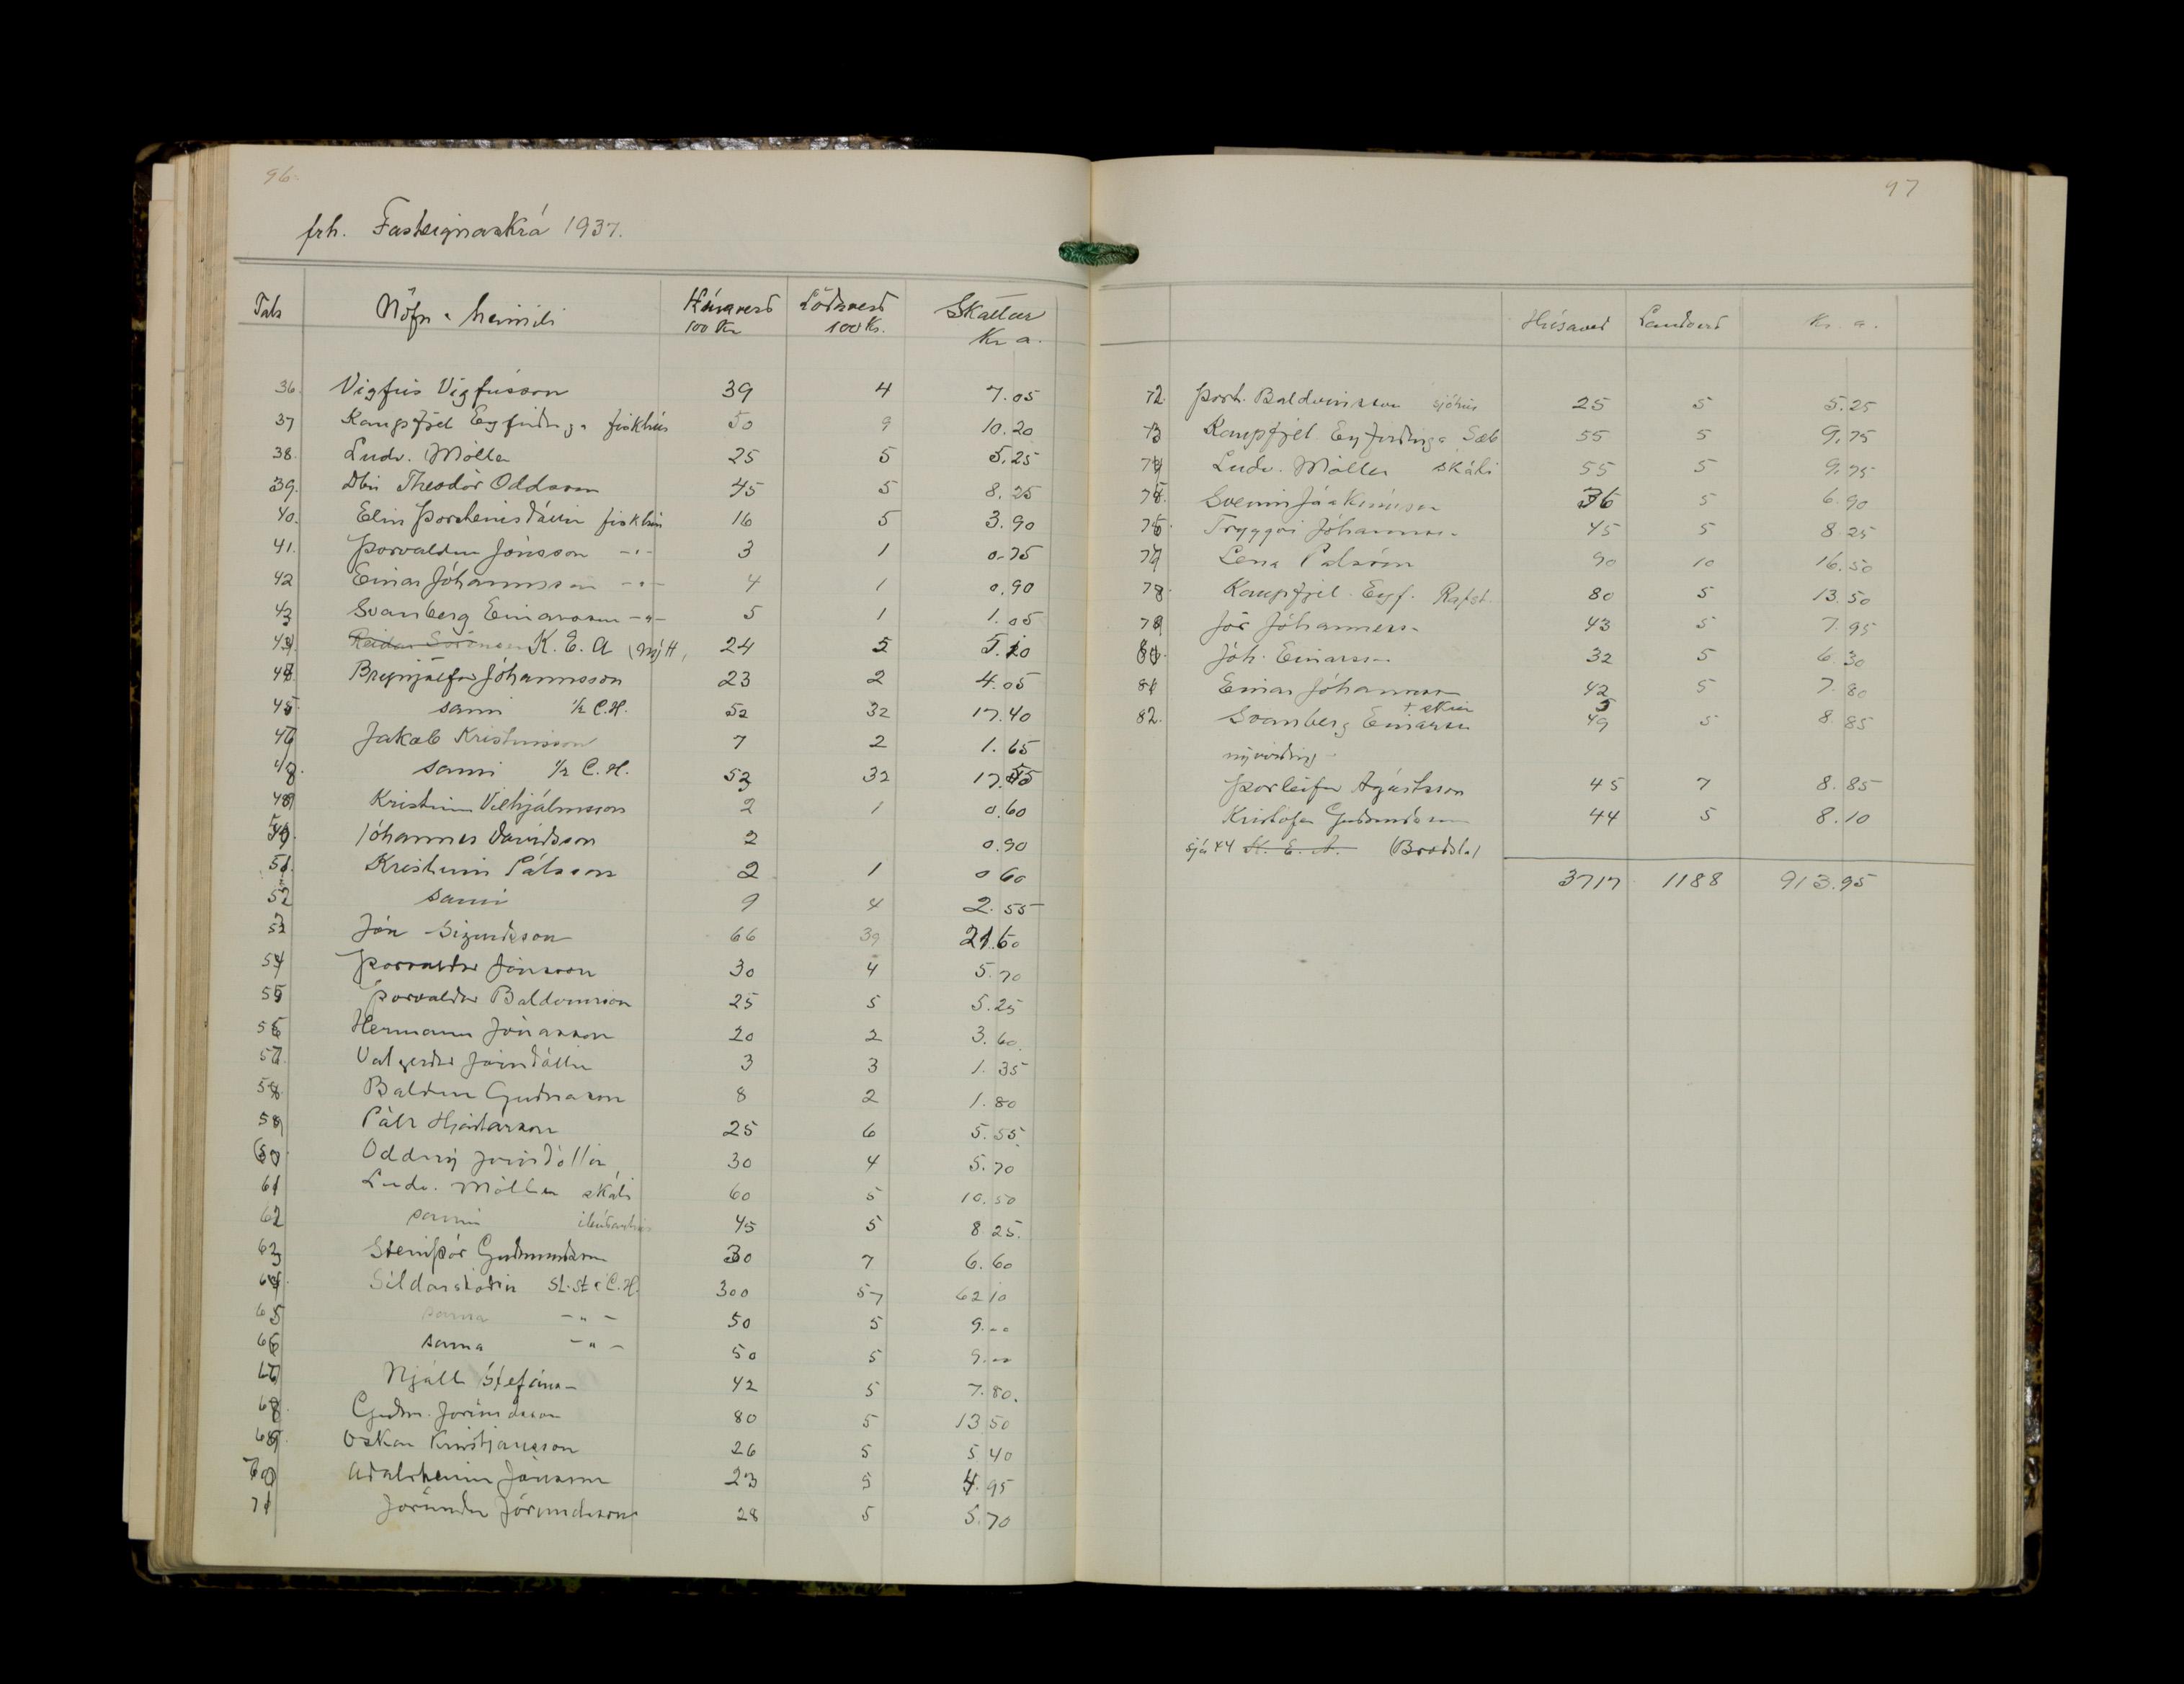 96.
frh. Fasteignaskrá 1937.
Tals Nöfn & heimili Húsaverð 100 Kr Lóðaverð 100 Kr. Skattur Kr a.
36. Vigfús Vigfússon 39 4 7.05
37 Kaupfjel Eyfirðinga fiskhús 50 9 10.20
38. Ludv. Möller 25 5 5.25
39. Dbú Theodór Oddsson 45 5 8.25
40. Elin Þorsteinsdóttir fiskhús 16 5 3.90
41. Þorvaldur Jónsson -"- 3 1 0.75
42 Einar Jóhannsson -"- 4 1 0.90
43 Svanberg Einarsson -"- 5 1 1.05
44. Reidar Sörensen K. E. A (nýtt) 24 5 5.10
Brynjólfur Jóhannsson 23 2 4.05
sami ½ C.H. 52 32 17.40
Jakob Kristinsson 7 2 1.65
48. sami ½ C.H. 53 32 17.55
49 Kristinn Vilhjálmsson 2 1 0.60
Jóhannes Davíðsson 2 0.90
51. Kristinn Pálsson 2 1 0 60
52 sami 9 4 2.55
53 Jón Sigurðsson 66 39 21.60
54 Þorvaldur Jónsson 30 4 5.70
55 Þorvaldur Baldvinsson 25 5 5.25
56 Hermann Jónasson 20 2 3.60.
57. Valgerður Jónsdóttir 3 3 1.35
58. Baldur Guðnason 8 2 1.80
59 Páll Hjartarson 25 6 5.55.
60. Oddný Jónsdóttir 30 4 5.70
61 Ludv. Möller skáli 60 5 10.50
62 sami íbúðarhús 45 5 8 25.
63 Steinþór Guðmundsson 30 7 6.60
64. Síldarstöðin St.st & C.H. 300 57 62 10
65 sama -"- 50 5 9.--
66 sama -"- 50 5 9.--
67 Njáll Stefáns- 42 5 7.80.
68. Guðm. Jörundsson 80 5 13 50
69. Oskar Kristjánsson 26 5 5 40
70 Aðalsteinn Jónsson 23 5 4.95
71 Jörundur Jörundsson 28 5 5.70
97
Húsaverð Landverð Kr. a.
72. Þorv. Baldvinsson sjóhús 25 5 5.25
73 Kaupfjel. Eyfirðinga Sæb 55 5 9.75
74 Ludv. Möller skáli 55 5 9.75
75. Sveinn Jóakimsson 36 5 6.90
76 Tryggvi Jóhannss- 45 5 8.25
77 Lena Pálsdóttir 90 10 16.50
78. Kaupfjel. Eyf. Rafst. 80 5 13.50
79 Jör Jóhanness- 43 5 7.95
80. Jóh. Einarsson 32 5 6.30
81 Einar Jóhannsson 42 5 7.80
82. Svanberg Einarsson + skúr 49 5 8.85
nývirðing-
Þorleifur Ágústsson 45 7 8.85
Kristófer Guðmundsson 44 5 8.10
sjá 44 K. E. A. (Bræðsla)
3717 1188 913.95